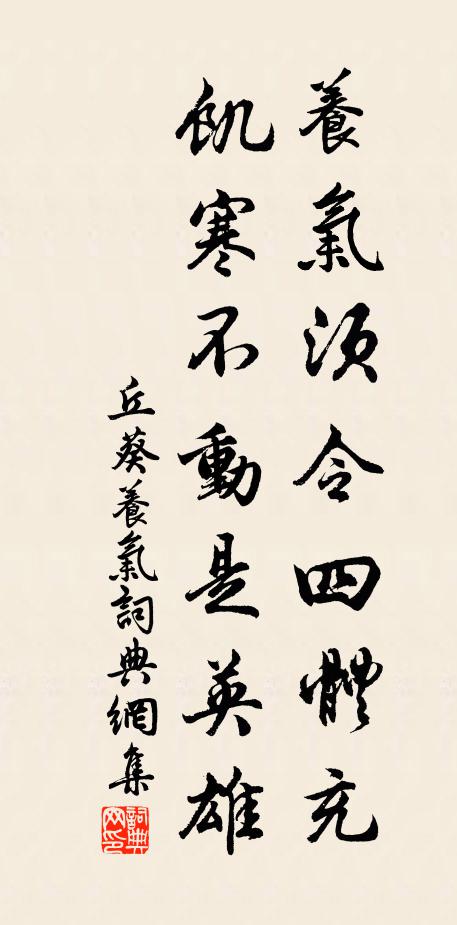 養氣須令四體充
飢寒不動是英雄
丘葵養氣詞典網集
詞典网印